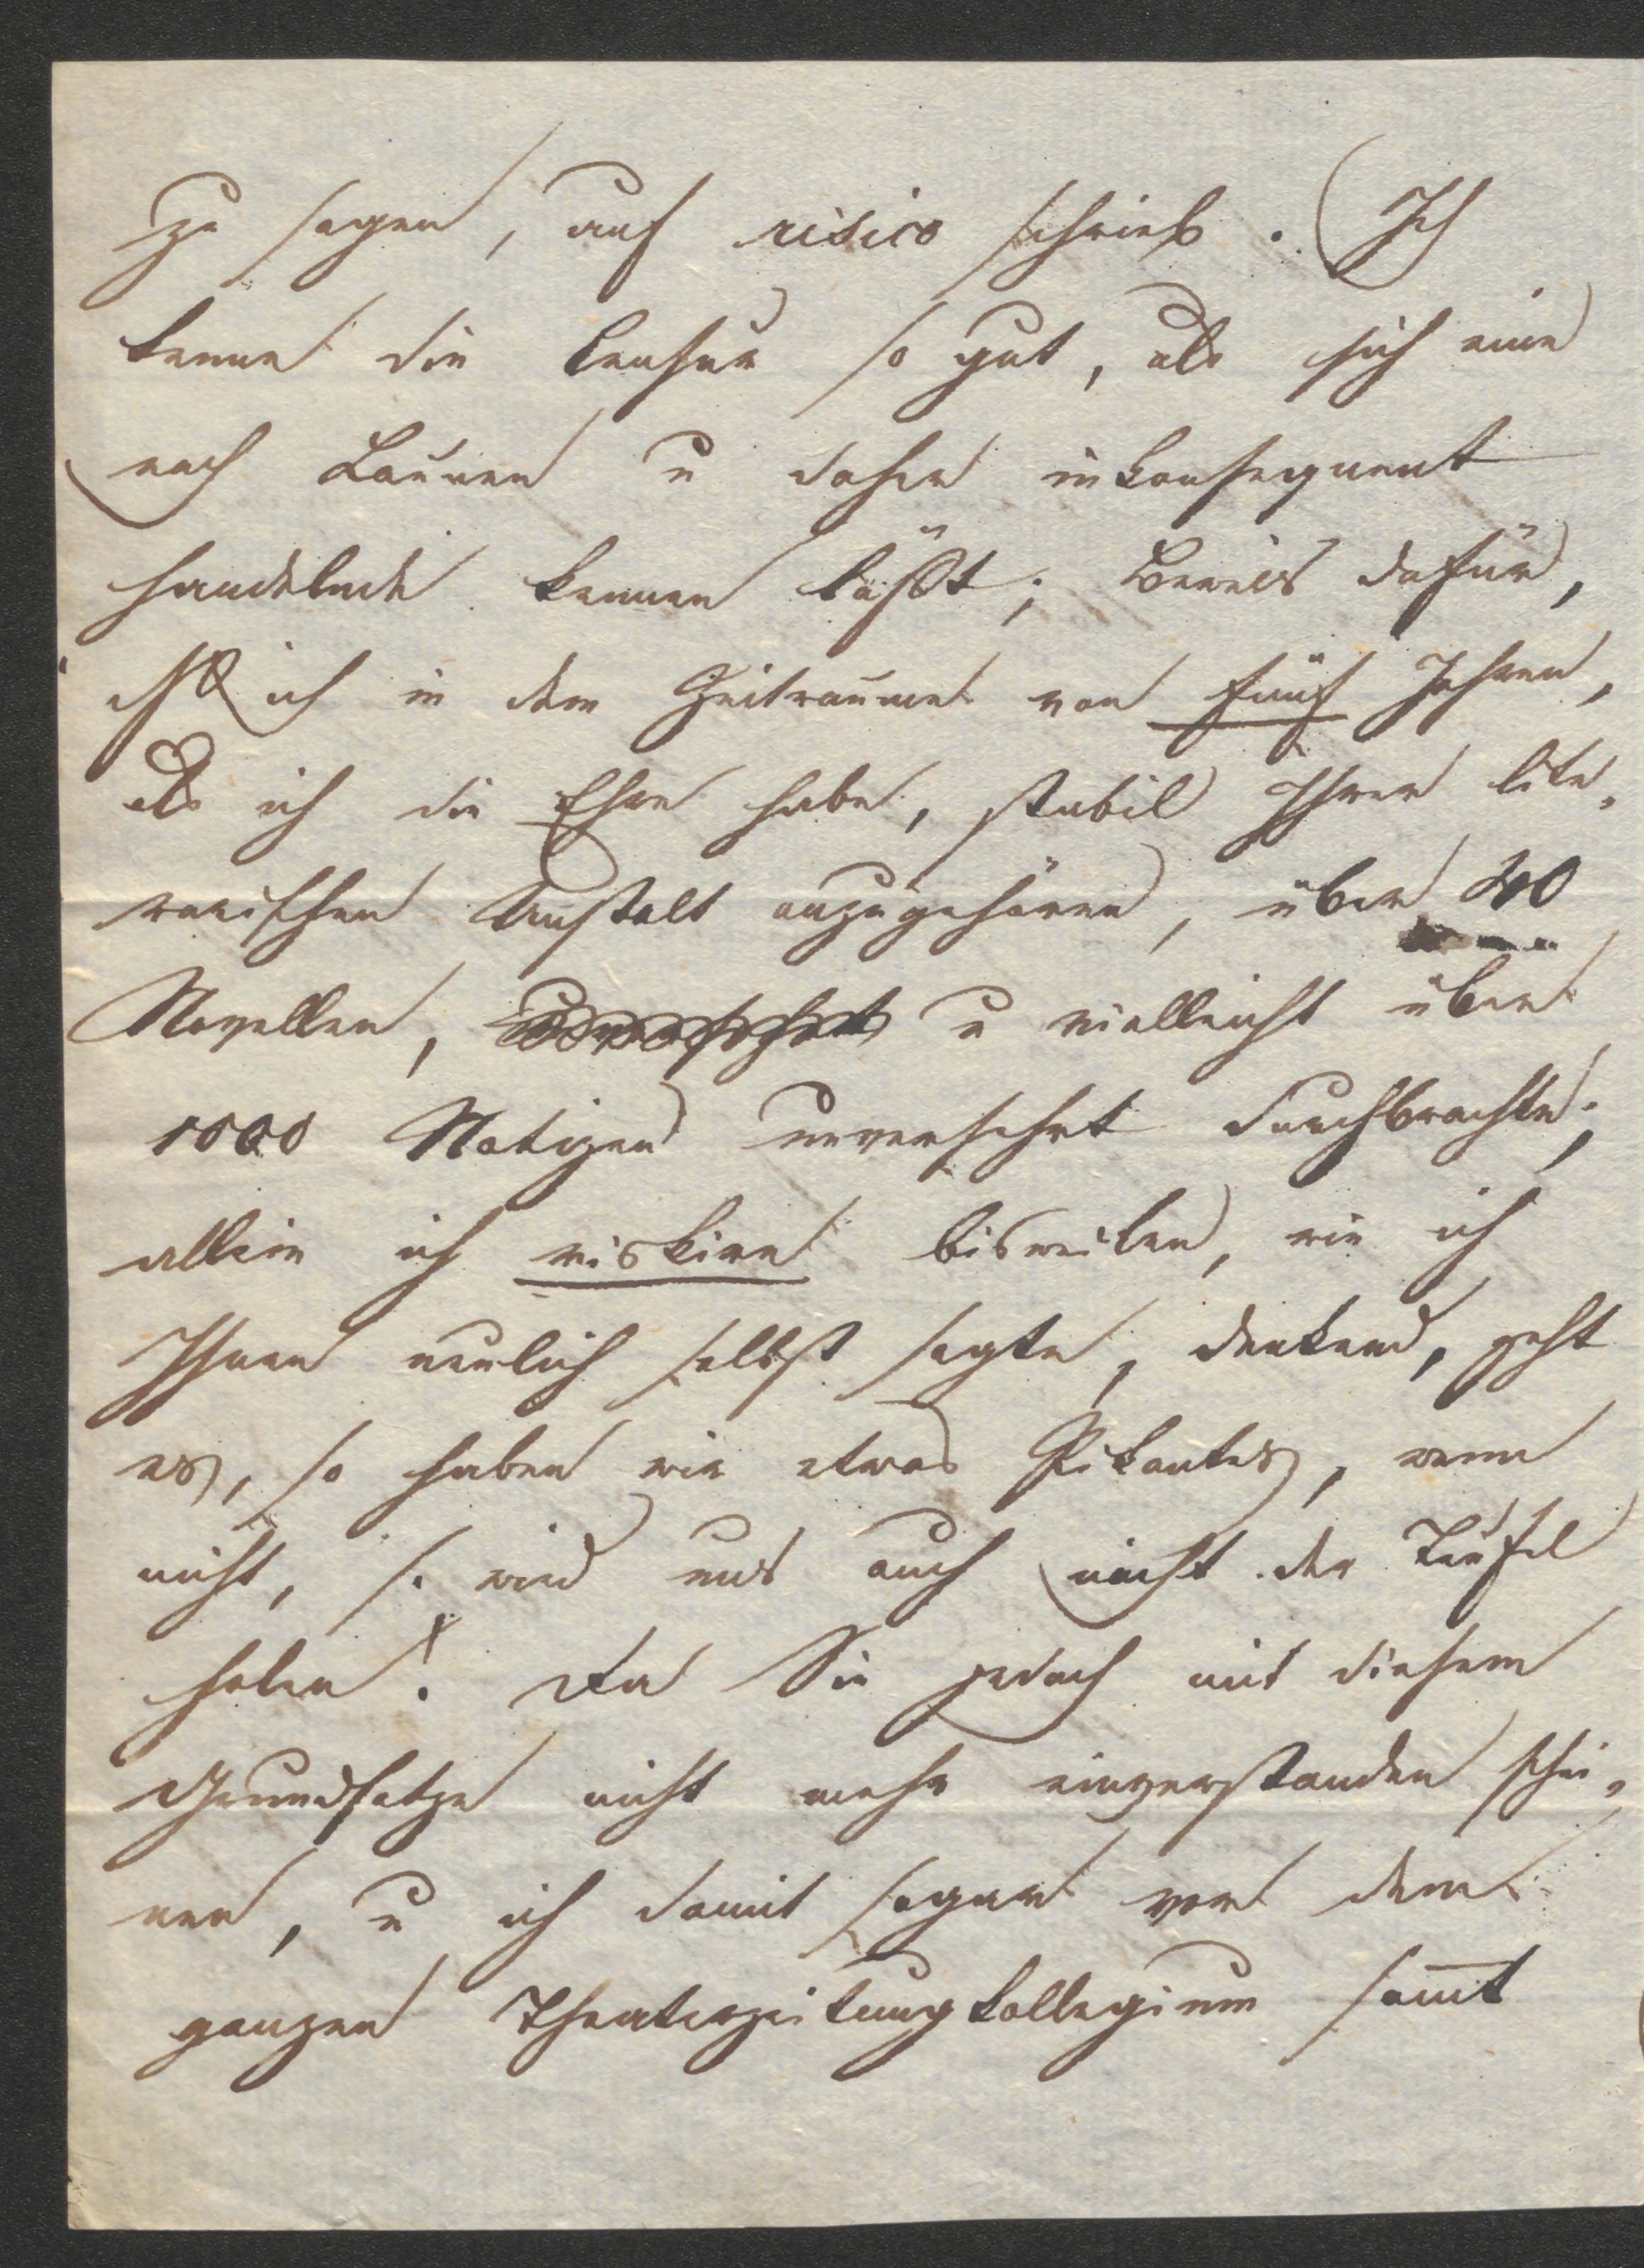 zu sagen, auf risico schrieb. Ich
kenne die Censur so gut, als sich eine
nach Launen u daher inkonsequent
handelnde kennen läßt; Beweis dafür,
daß ich in dem Zeitraume von fünf Jahren,
als ich die Ehre habe, stabil Ihrer lite¬
rarischen Anstalt anzugehören, über 40
Novellen, unversehrt u vielleicht über
1000 Notizen unversehrt durchbrachte;
allein ich riskire bisweilen, wie ich
Ihnen neulich selbst sagte, denkend, geht
es, so haben wir etwas Pikantes, wenn
nicht, so wird uns auch nicht der Teufel
holen! Da Sie jedoch mit diesem
Grundsatze nicht mehr einverstanden schei¬
nen, u ich damit sogar vor dem
ganzen Theaterzeitungkollegium sam̅t